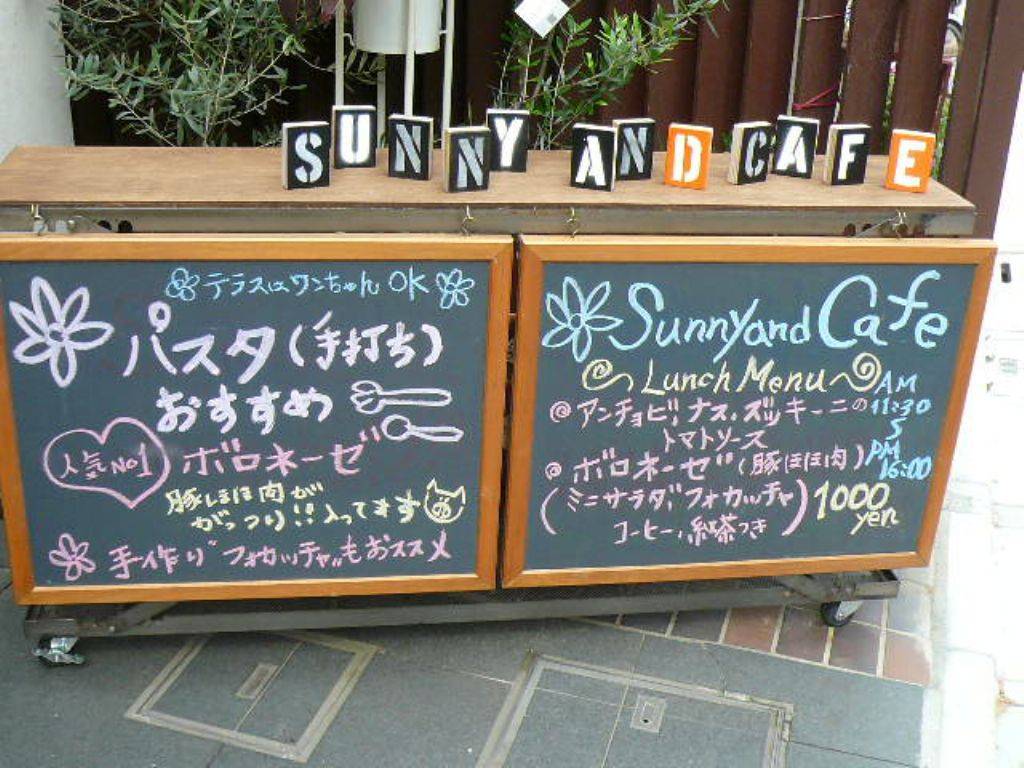 SUNNY AND CAFE
テラスはワンちゃんOK
パスタ(手打ち)
おすすめ
人気No1
ボロネーゼ
豚ほほ肉が
がっつり!!入ってます
手作り"フォカッチャ"もおススメ
Sunnyand Cafe
Lunch Menu
アンチョビ、ナス、ズッキーニの
トマトソース
ボロネーゼ(豚ほほ肉)
(ミニサラダ、フォカッチャ
コーヒー、紅茶つき)
AM
11:30
PM
16:00
1000
yen